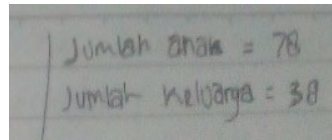 Jumlah anak = 78
Jumlah keluarga = 38